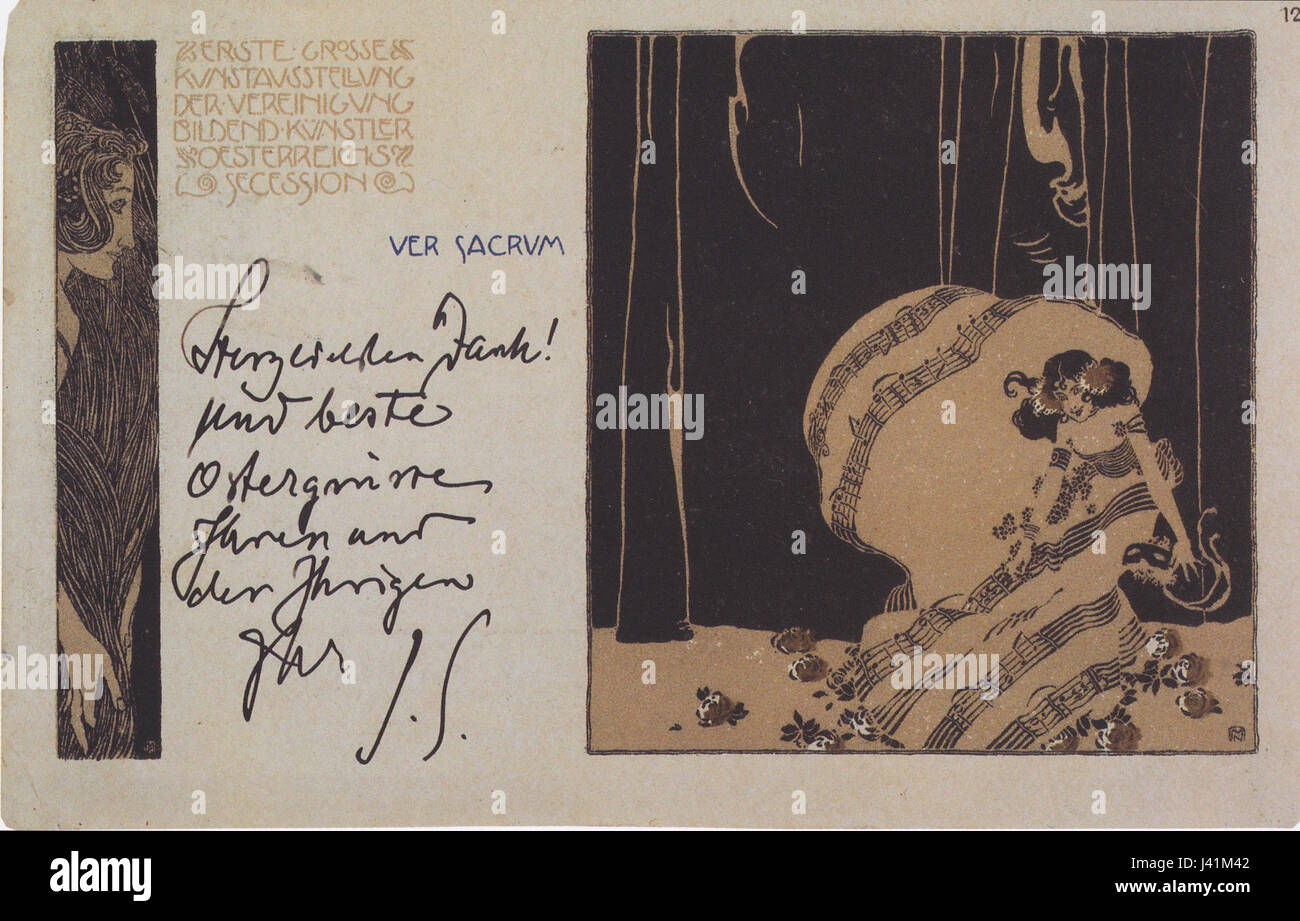 12
ERSTE · GROSSE
KVNSTAVSSTELLVNG
DER · VEREINIGVNG
BILDEND · KVNSTLER
OESTERREICHS
SECESSION
VER SACRVM
Herzlichsten Dank!
und beste
Ostergrüsse
Ihnen und
den Ihrigen
Ihr
J. S.
a alamy stock photo
J41M42
www.alamy.com